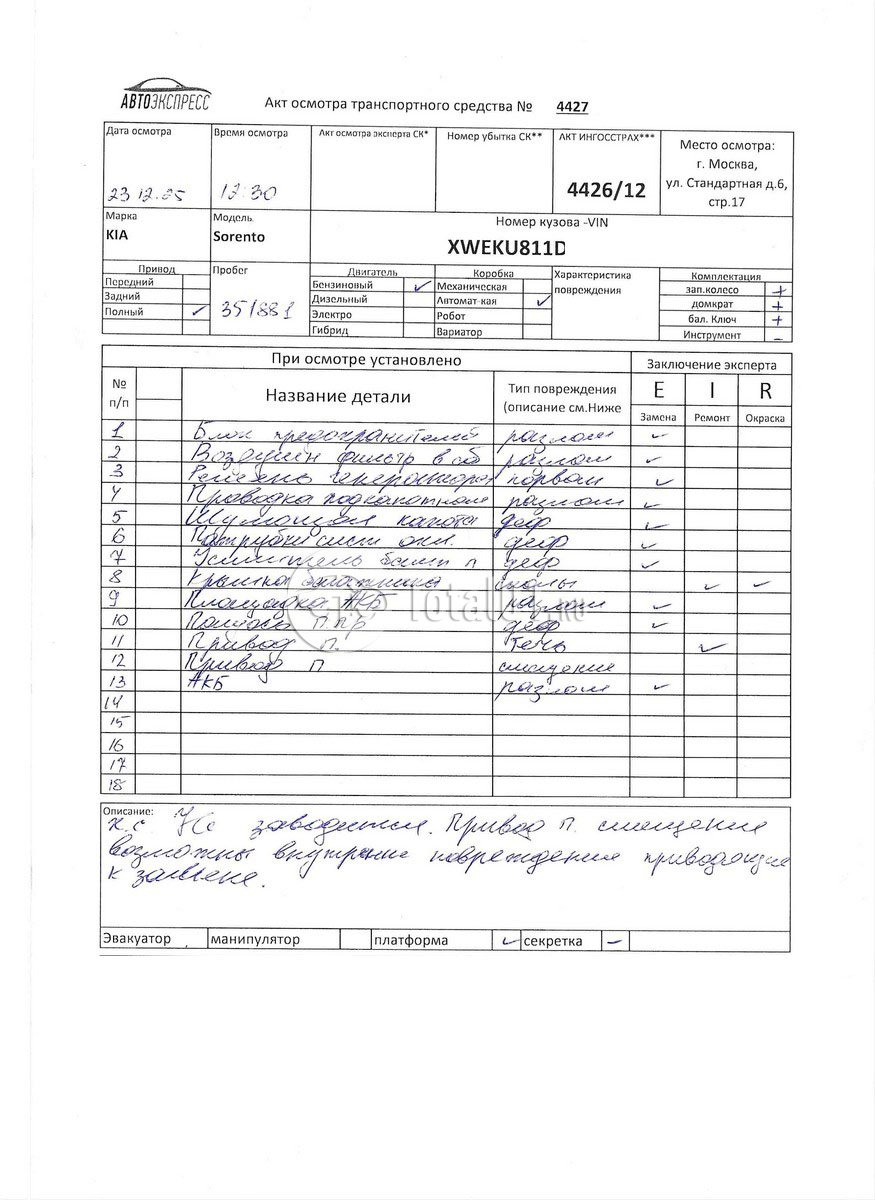 АВТОЭКСПРЕСС
Акт осмотра транспортного средства № 4427
Дата осмотра Время осмотра Акт осмотра эксперта СК* Номер убытка СК** АКТ ИНГОССТРАХ*** Место осмотра:
г. Москва,
23 12.25 12:30 4426/12 ул. Стандартная д.6,
стр.17
Марка Модель Номер кузова -VIN
KIA Sorento XWEKU811D
Привод Пробег Двигатель Коробка Характеристика повреждения Комплектация
Передний Бензиновый ✓ Механическая зап.колесо +
Задний Дизельный Автомат-кая ✓ домкрат +
Полный ✓ 351881 Электро Робот бал. Ключ +
Гибрид Вариатор Инструмент -
При осмотре установлено Заключение эксперта
№ п/п Название детали Тип повреждения (описание см.Ниже E I R
Замена Ремонт Окраска
1 Блок предохранителей разлом ✓
2 Воздушн фильтр в сб разлом ✓
3 Ремень генератора порван ✓
4 Проводка подкапотная разлом ✓
5 Шумоизол капота деф ✓
6 Патрубки сист охл. деф ✓
7 Усилитель бамп п деф ✓
8 Крышка багажника сколы ✓ ✓
9 Площадка АКБ разлом ✓
10 ППР деф ✓
11 Привод п. Течь ✓
12 Привод п смещение
13 АКБ разлом ✓
14
15
16
17
18
Total01.RU
Описание:
х.с Не заводится. Привод п. смещение
возможны внутрение повреждение приводящие
к замене.
Эвакуатор манипулятор платформа ✓ секретка –